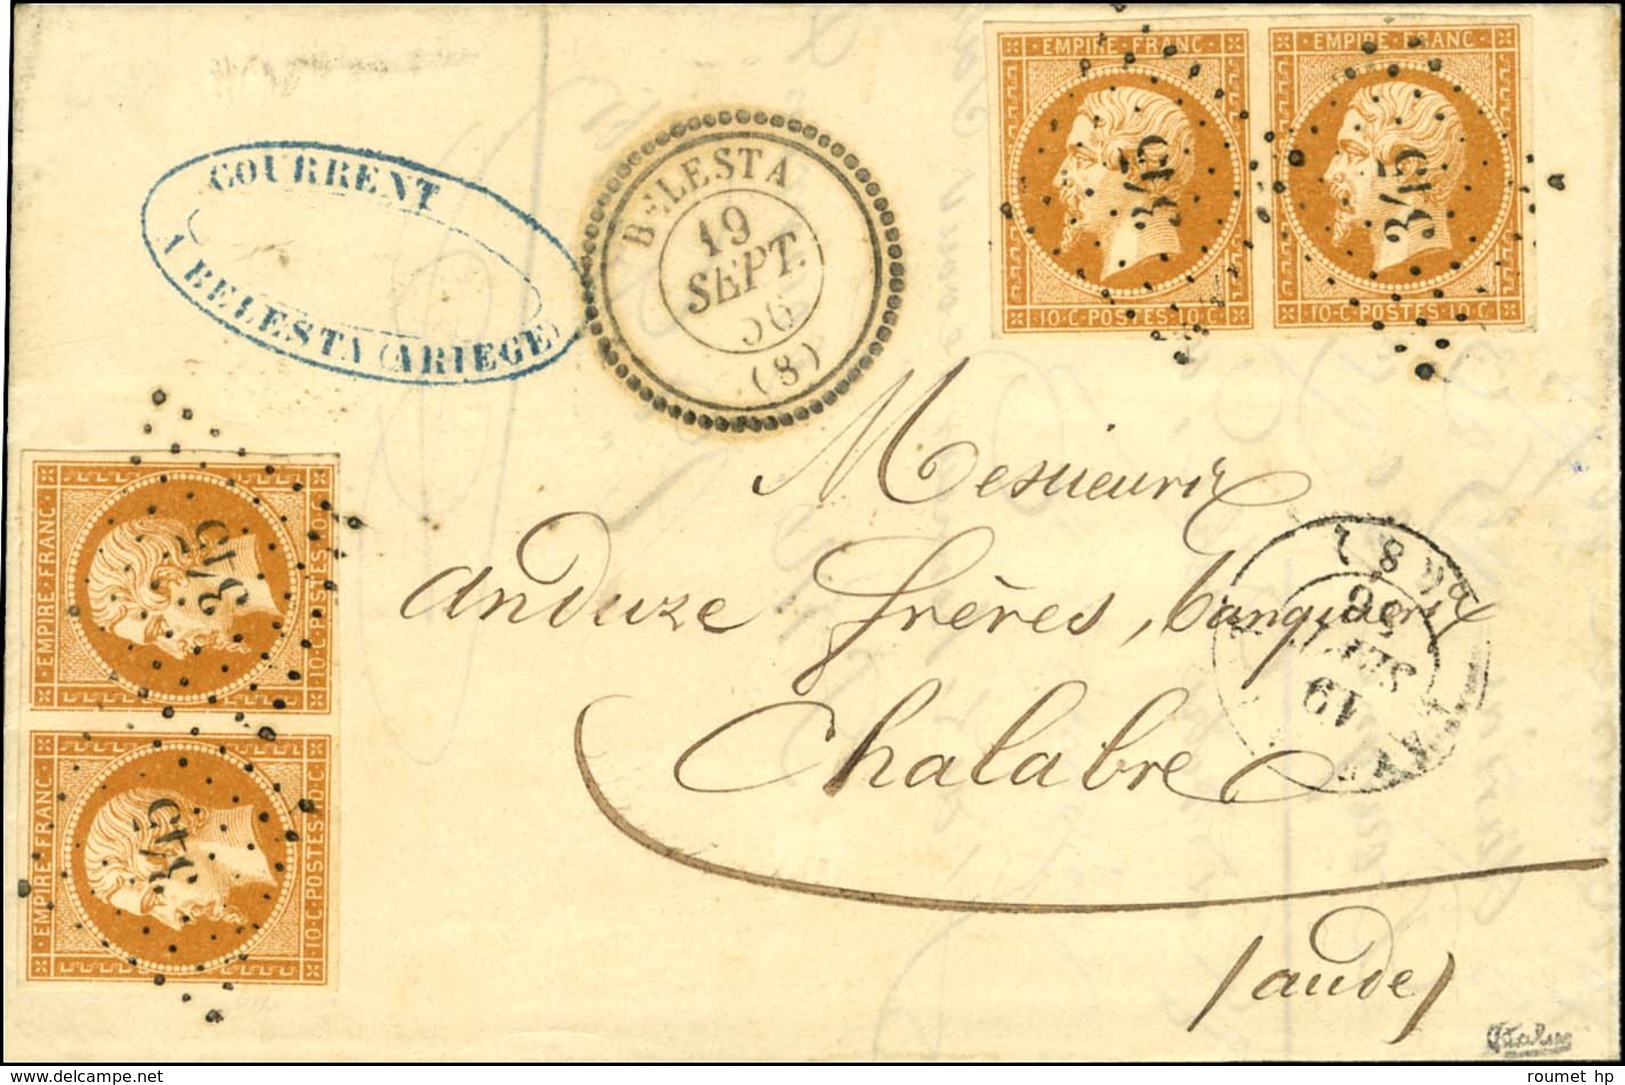 COURRENT
A BELESTA (ARIEGE)
BELESTA
19
SEPT.
56
(8)
EMPIRE·FRANC·
345
10·C·POSTES·10·C
EMPIRE·FRANC·
345
10·C·POSTES·10·C
EMPIRE·FRANC·
345
10·C·POSTES·10·C
EMPIRE·FRANC·
345
10·C·POSTES·10·C
Messieurs
Anduze frères, banquiers
Chalabre
(Aude)
19
SEPT
56
roumet hp